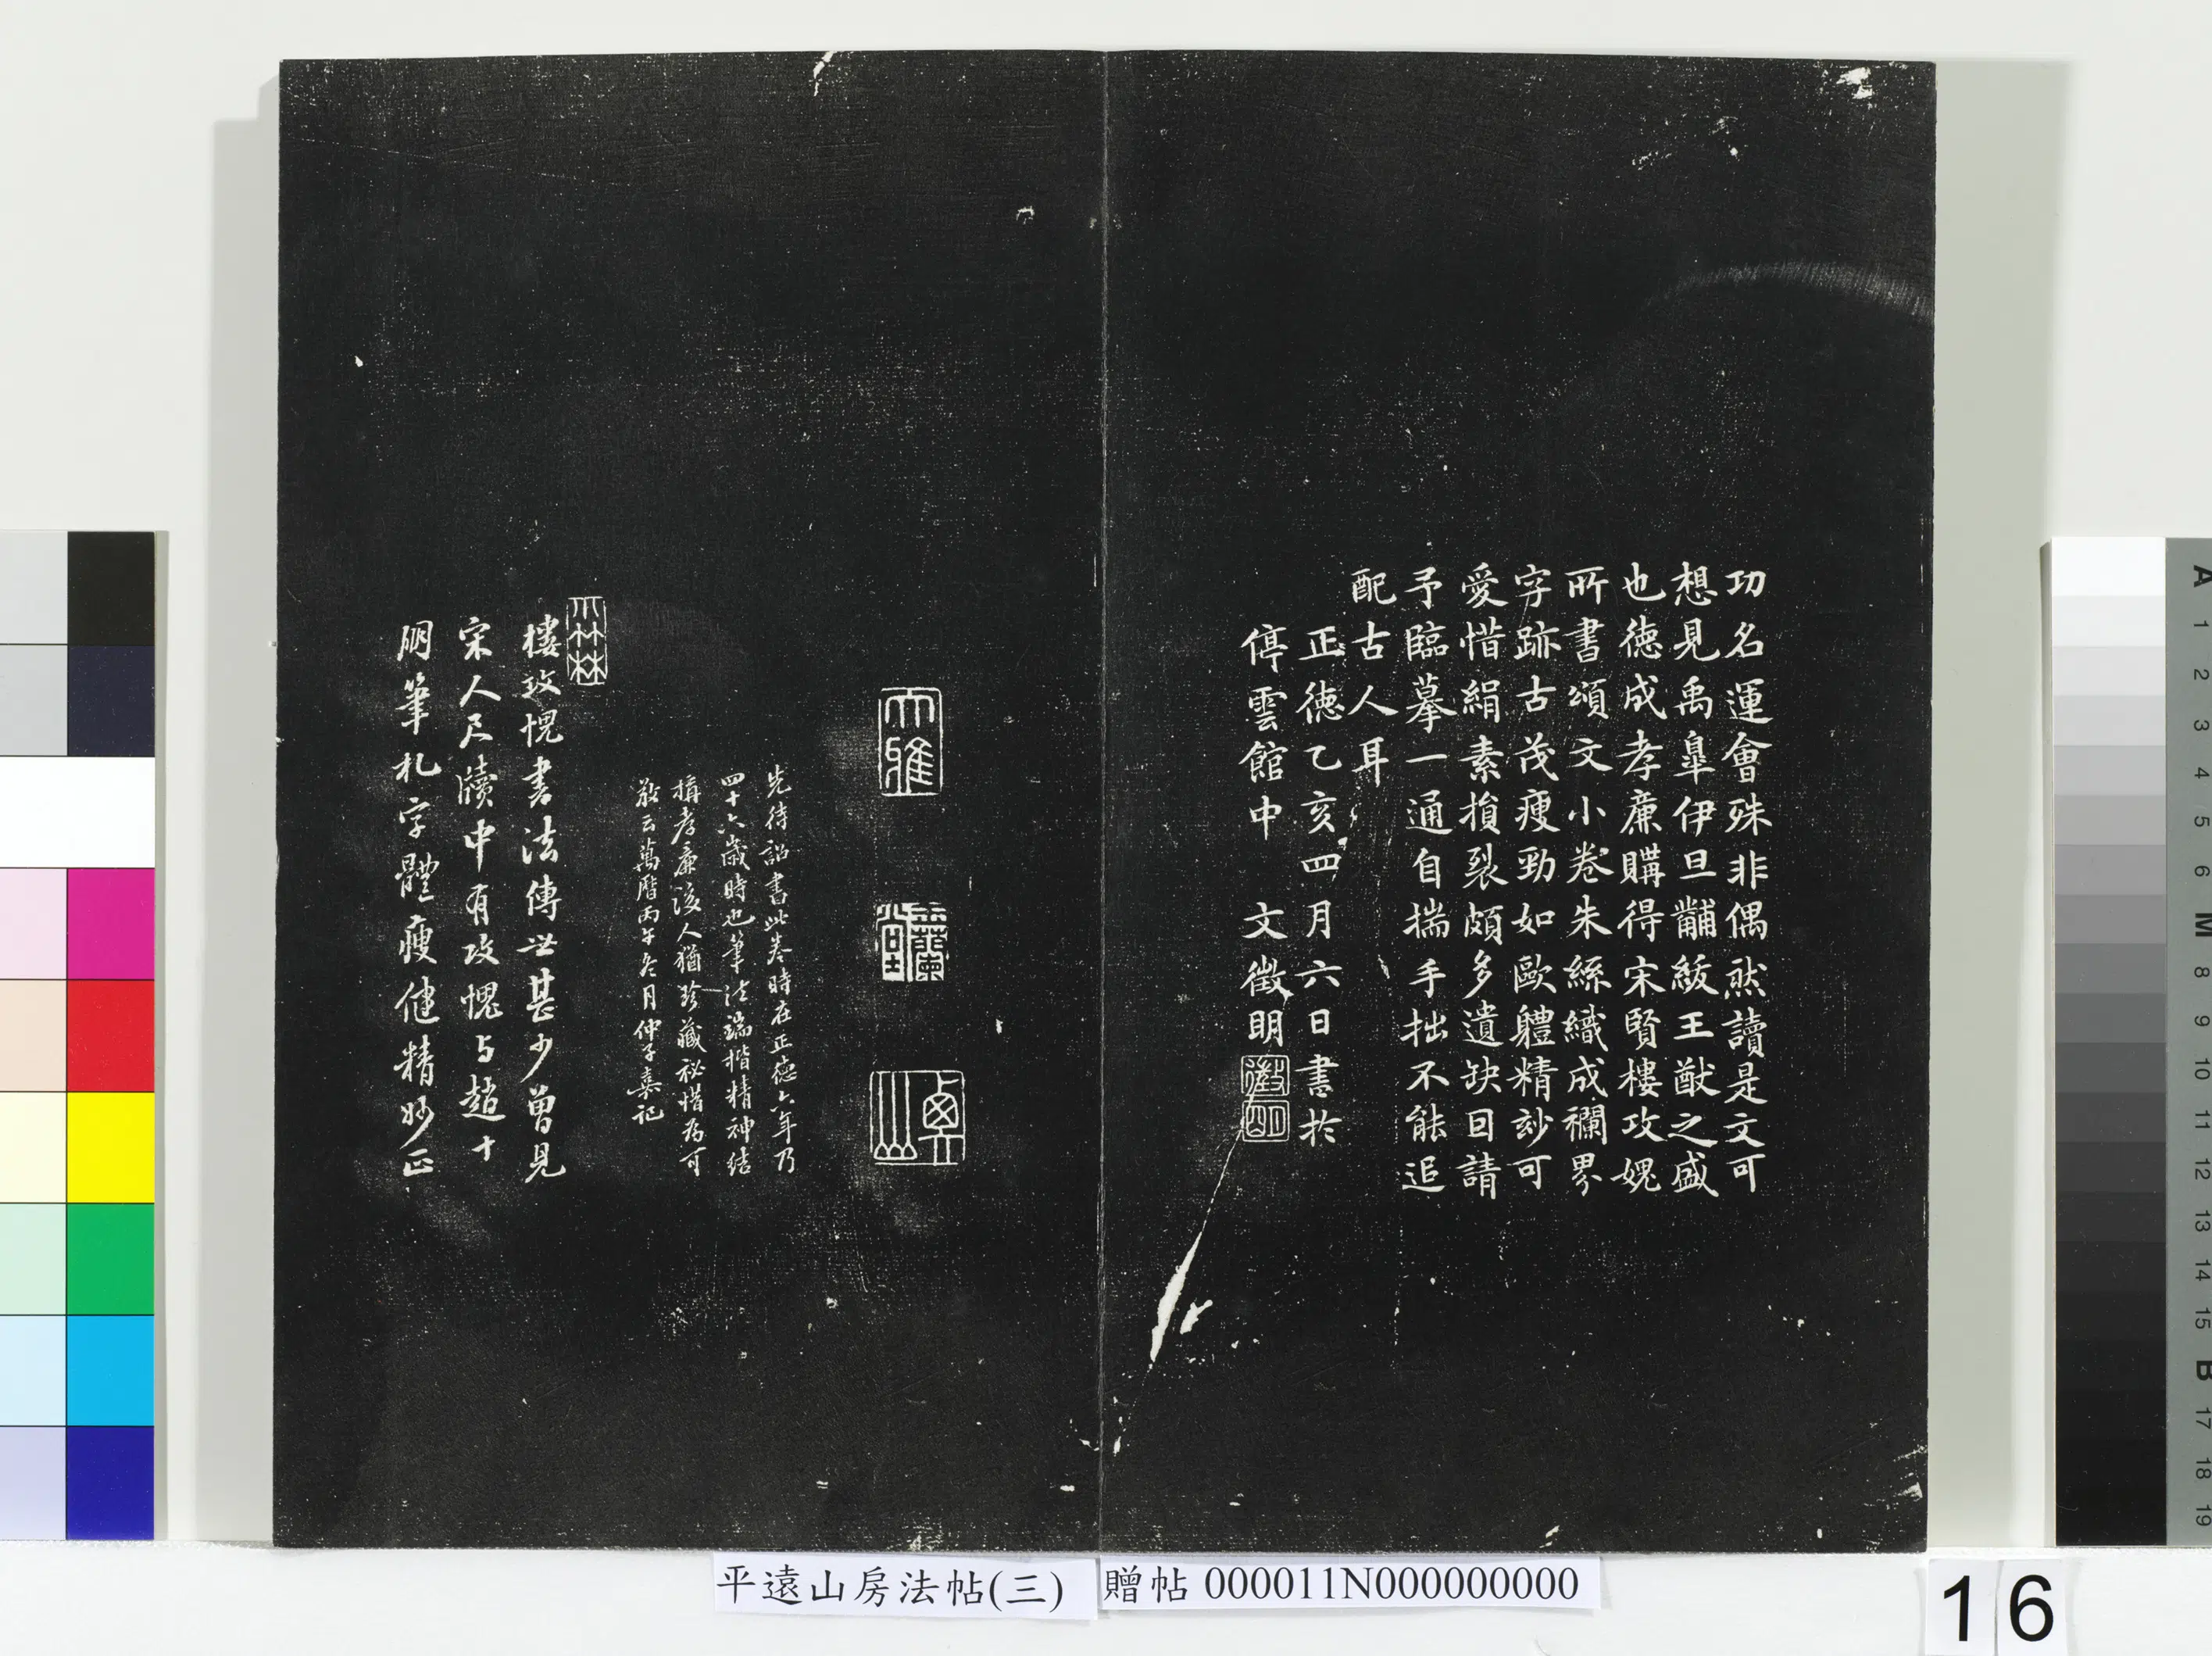 功名運會殊非偶然讀是文可
想見禹臯伊旦黼紱王猷之盛
也德成孝廉購得宋賢樓攻媿
所書頌文小卷朱絲織成襴界
字跡古茂瘦勁如歐軆精玅可
愛惜絹素損裂頗多遺缺囙請
予臨摹一通自揣手拙不能追
配古人耳
正德乙亥四月六日書於
停雲館中 文徵明
徵明
大雅
蘭堂
貞山
先待詔書此卷時在正德六年乃
四十六歲時也筆法端楷精神結
搆孝廉後人猶珍藏祕惜為可
敬云萬曆丙午冬月仲子嘉記
竹林
樓攻愧書法傳世甚少曾見
宋人尺牘中有攻愧与趙十
朋筆札字體瘦健精妙正
平遠山房法帖(三)
贈帖 000011N000000000
16
A 1 2 3 4 5 6 M 8 9 10 11 12 13 14 15 B 17 18 19